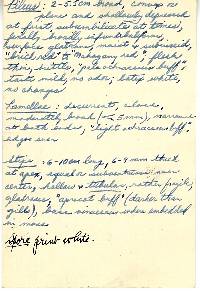 Pileus: 2-5.5cm broad, convex to
plane and shallowly depressed
at first, subumbilicate at times,
finally broadly infundibuliform,
surface glabrous, moist & subviscid,
"brick red" to "Mahogany red", flesh
thin, brittle, "pale ochraceous buff"
taste mild, no odor, latex white,
no change
Lamellae: decurrent, close,
moderately broad (- 5mm), narrowed
at both ends, "light ochraceous buff"
edges even
Stipe: 6-10cm long, 6-9 mm thick
at apex, equal or subventricose near
center, hollow & tubular, rather fragile,
glabrous, "apricot buff" (darker than
gills), base vinaceous when embedded
in moss
Spore print white.